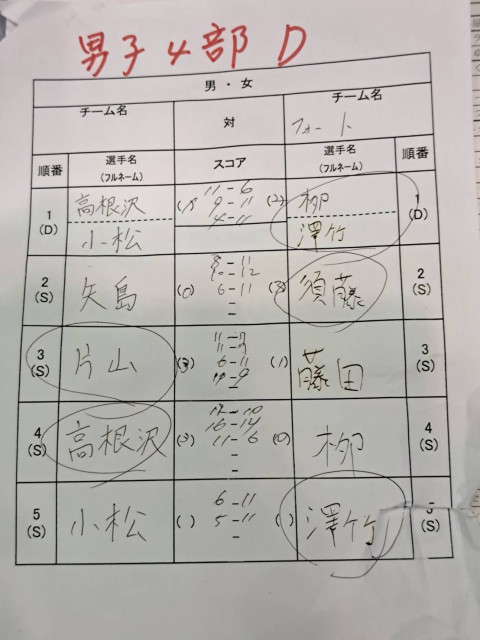 男子4部 D
男・女
チーム名 対 チーム名
フォート
順番 選手名 (フルネーム) スコア 選手名 (フルネーム) 順番
1 (D) 高根沢 小松 (1) 11-6 9-11 4-11 (2) 柳 澤竹 1 (D)
2 (S) 矢島 (0) 8-11 10-12 6-11 - - (3) 須藤 2 (S)
3 (S) 片山 (3) 11-7 11-7 6-11 11-9 - (1) 藤田 3 (S)
4 (S) 高根沢 (3) 12-10 16-14 11-6 - - (0) 柳 4 (S)
5 (S) 小松 ( ) 6-11 5-11 - - - ( ) 澤竹 5 (S)